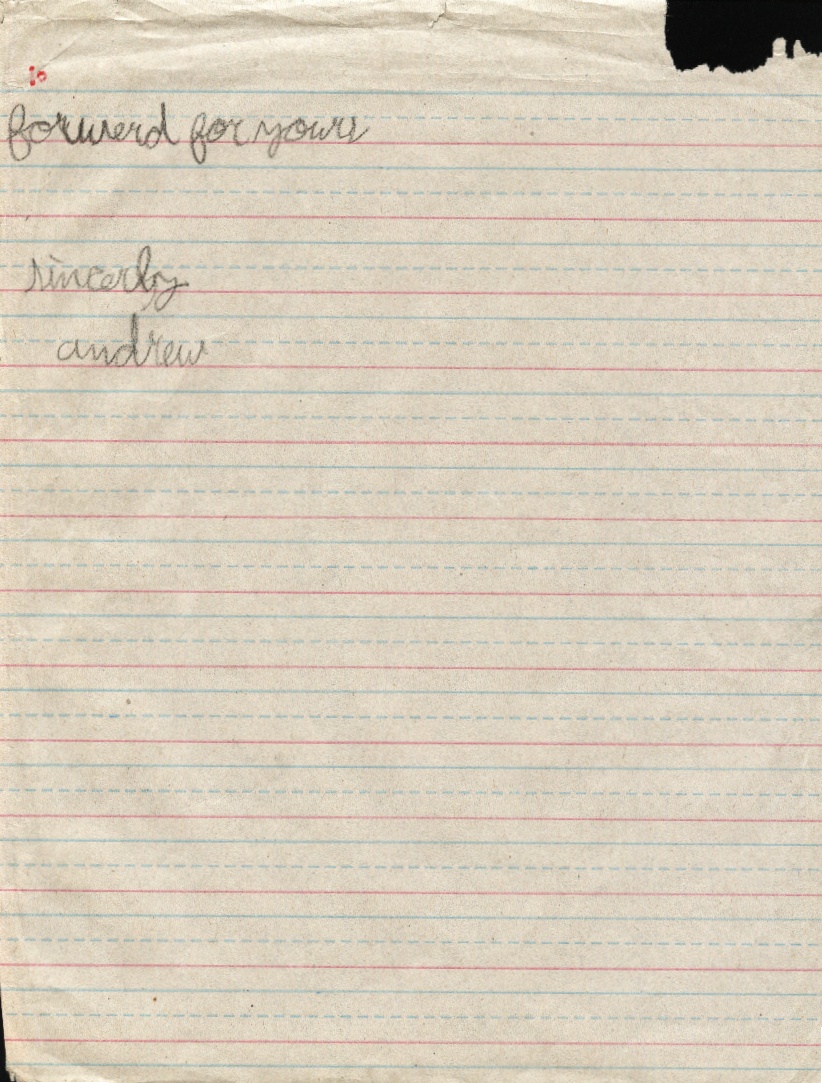 forwerd for yours
sincerly
andrew